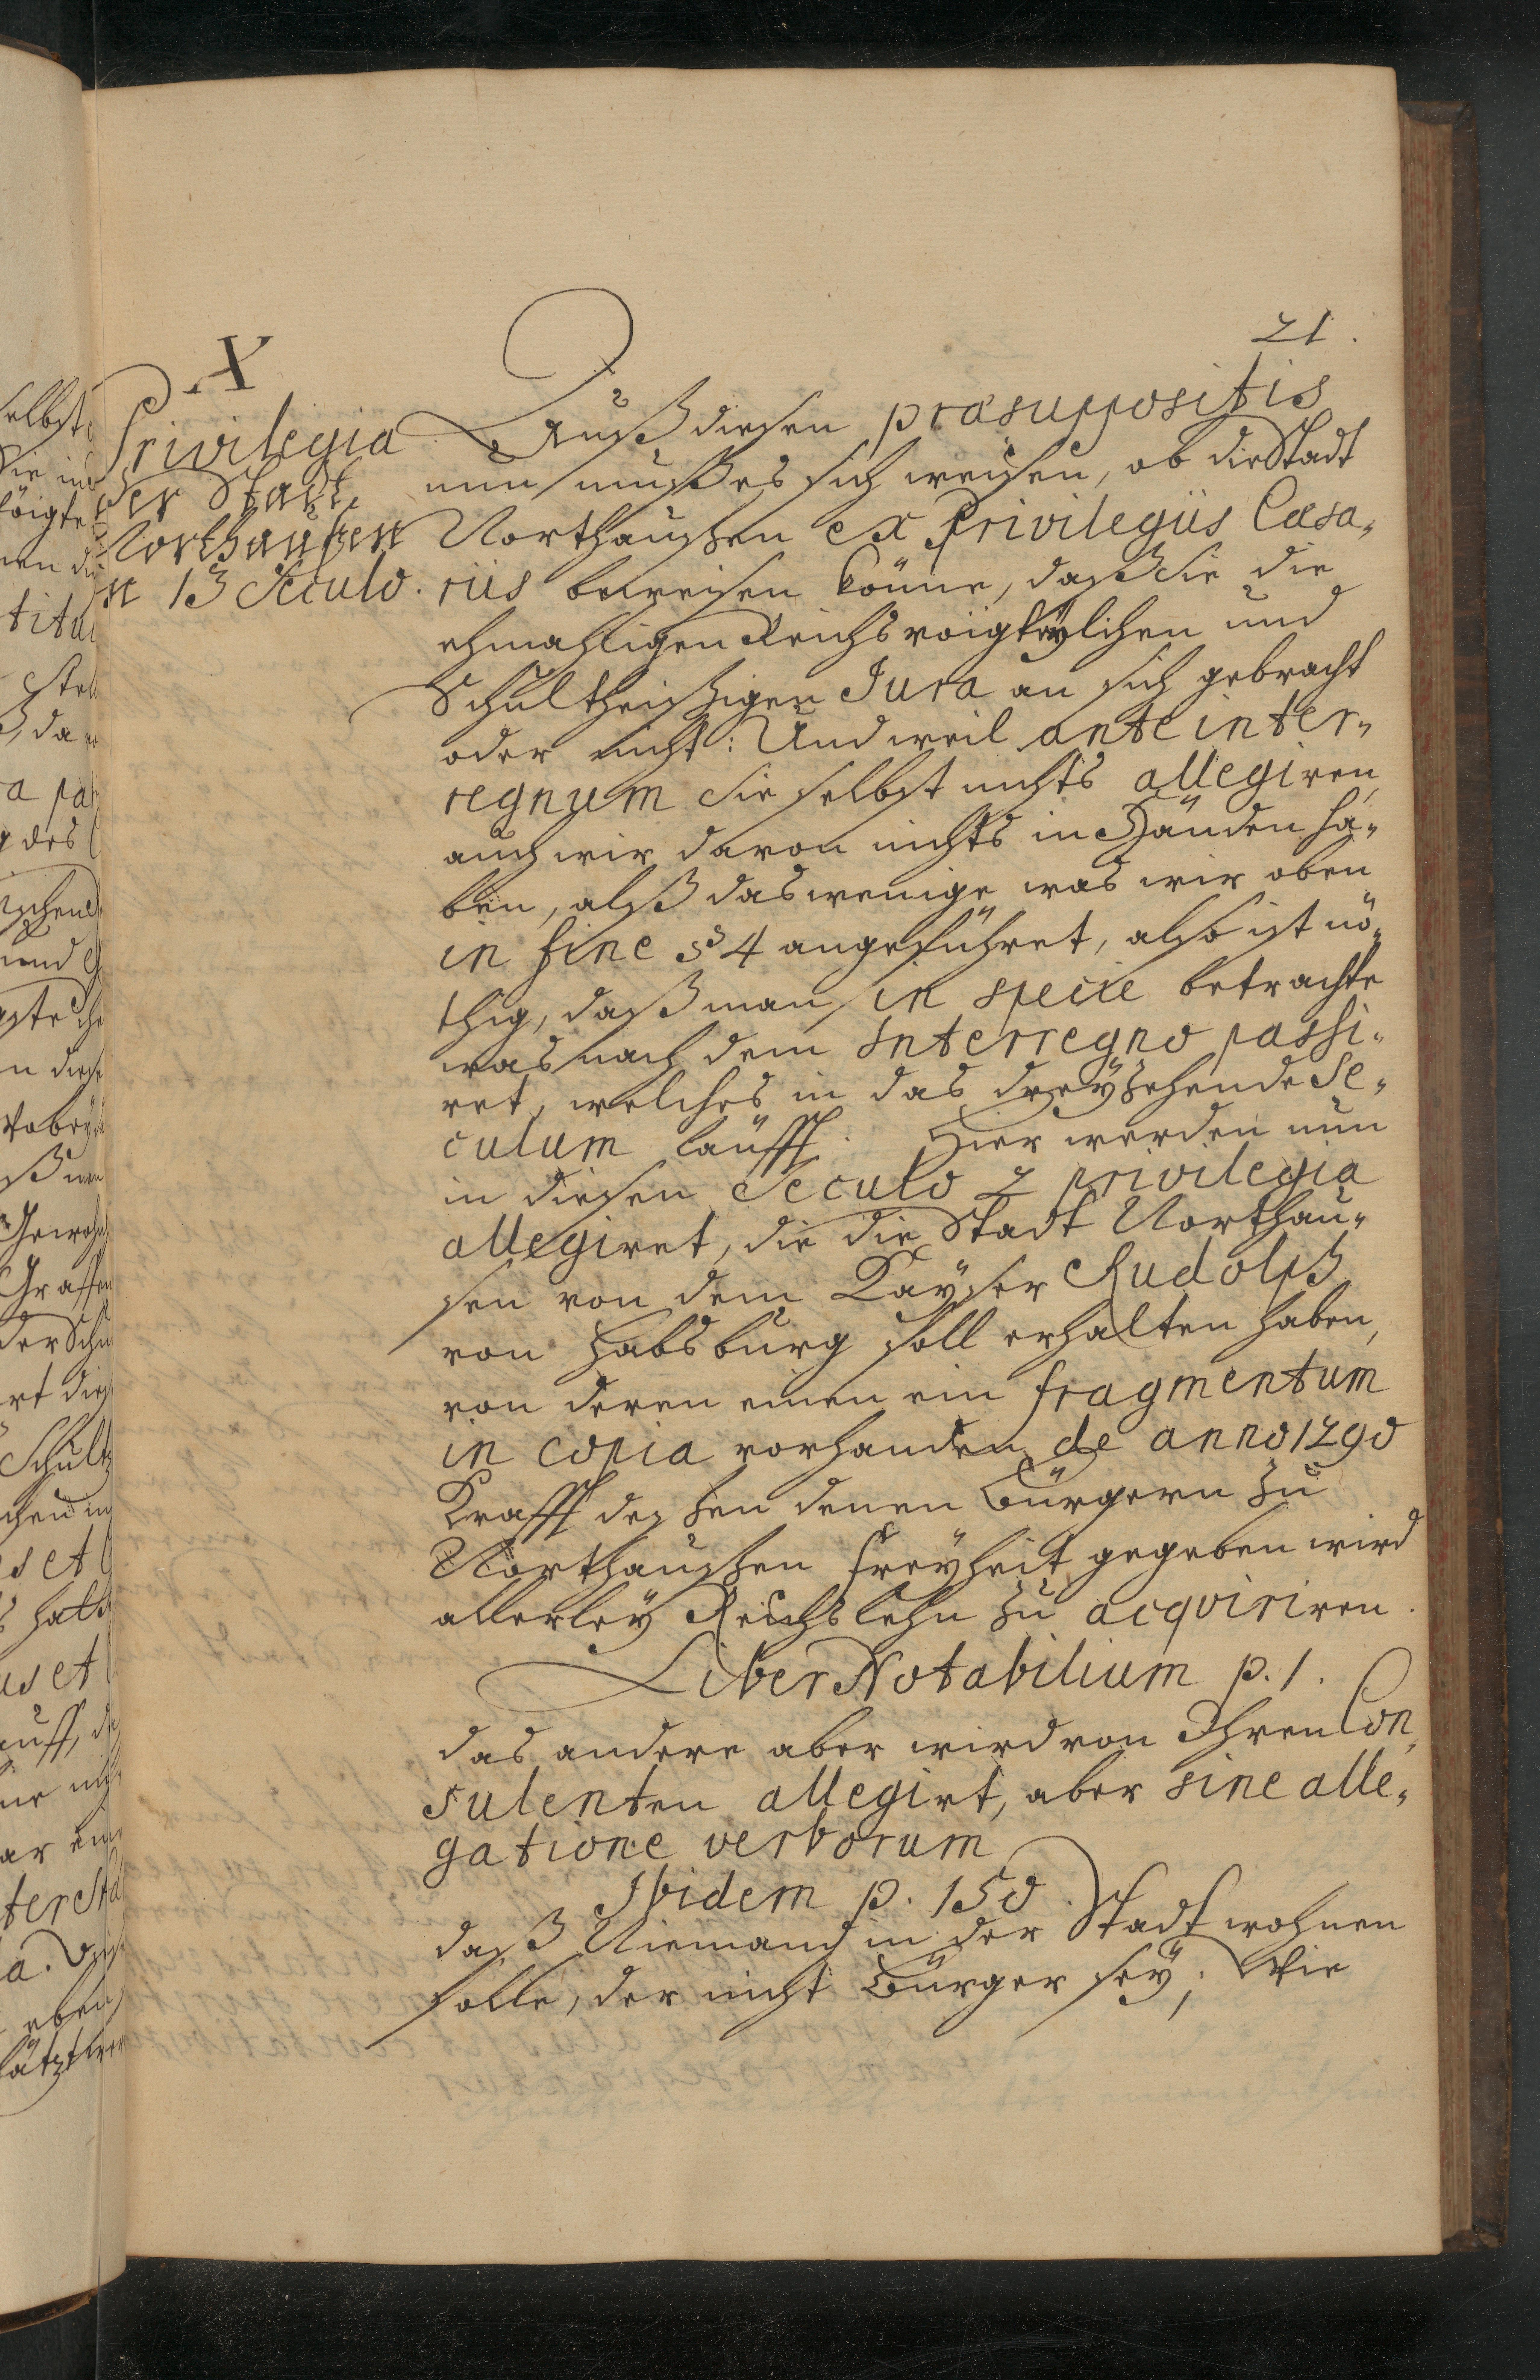 21.
X
Privilegia
der Stadt
Northaußen
in 13 Seculo.
Auß diesen præsuppositis
nun muß es sich weisen, ob die Stadt
Northaußen ex Privilegiis Cæsa„
riis beweisen könne, daß Sie die
ehmahligen Reichsvoigteylichen und
Schultheißigen Jura an sich gebracht
oder nicht: Und weil ante inter„
regnum Sie selbst nichts allegiren,
auch wir davon nichts in Händen ha„
ben, alß das wenige was wir oben
in fine § 4 angeführet, also ist nö„
thig, daß man in specie betrachte
was nach dem Interregno passi„
ret, welches in das dreyzehende Se„
culum läufft. Hier werden nun
in diesen Seculo 2 privilegia
allegiret, die die Stadt Northau„
sen von dem Kayser Rudolph
von Habsburg soll erhalten haben,
von deren einen ein fragmentum
in copia vorhanden de anno 1290
Krafft deßen denen Bürgern zu
Northaußen freyheit gegeben wird
allerley Reichslehn zu acqviriren.
Liber Notabilium p. 1.
das andere aber wird von Ihren Con„
sulenten allegirt, aber sine alle„
gatione verborum
Ibidem p. 150.
daß Niemand in der Stadt wohnen
solle, der nicht Bürger sey; Wie